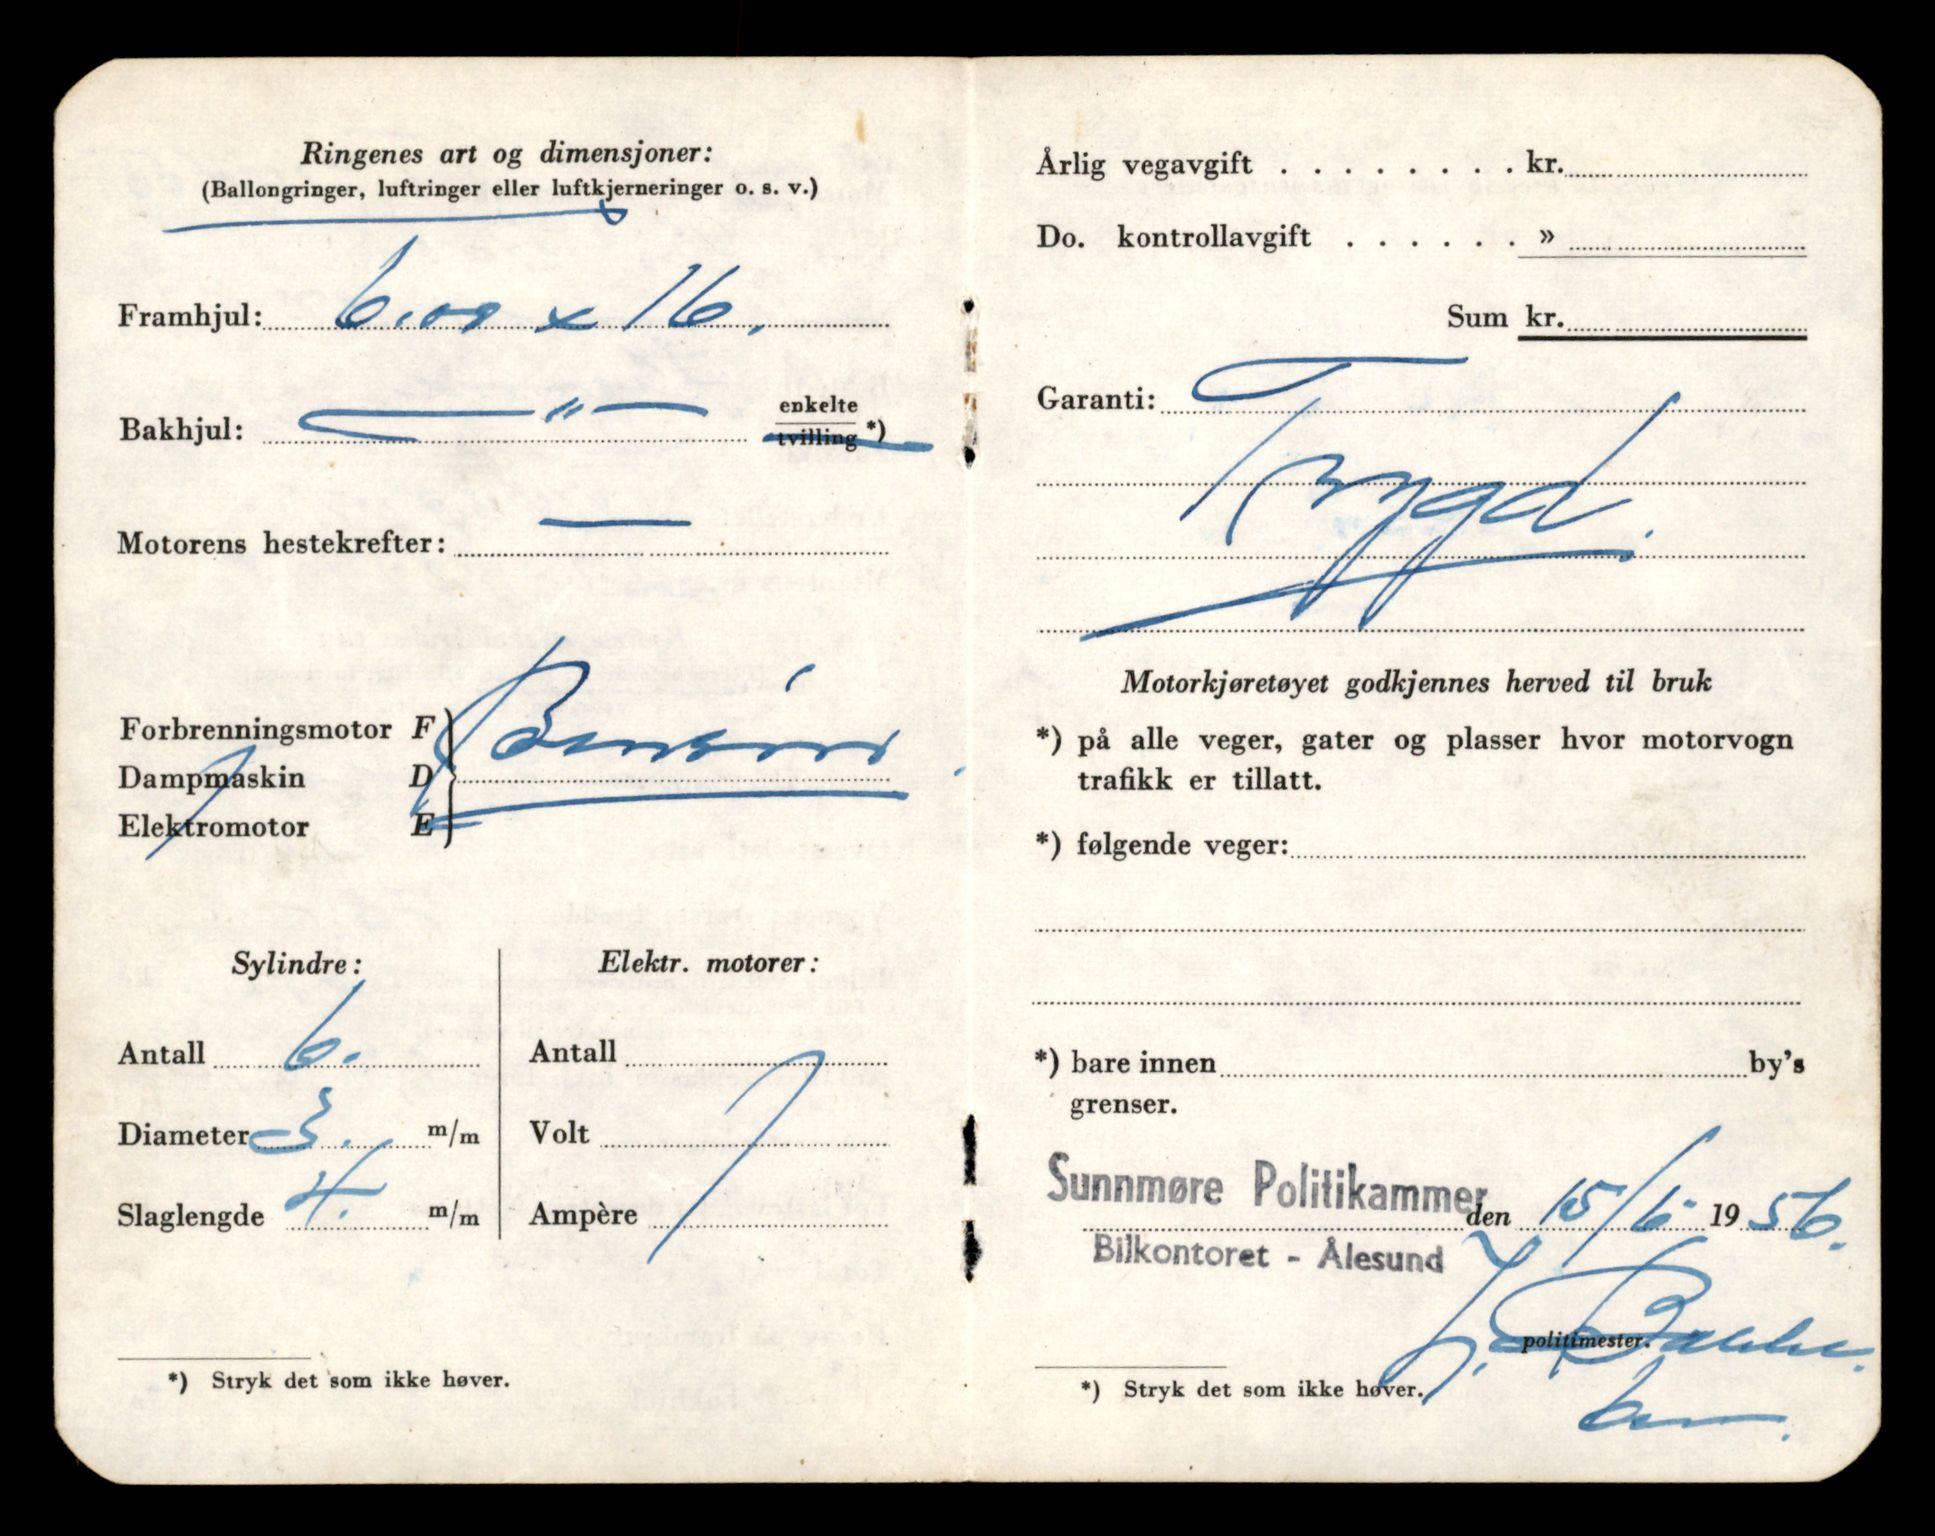 Ringenes art og dimensjoner:
(Ballongringer, luftringer eller luftkjerneringer o. s. v.)
Framhjul: 6.00 x 16.
Bakhjul: — " — enkelte
tvilling *)
Motorens hestekrefter: —
Forbrenningsmotor F
Bensin
Dampmaskin D
Elektromotor E
Sylindre:
Antall 6.
Diameter 3. m/m
Slaglengde 4. m/m
Elektr. motorer:
Antall
Volt
Ampère
*) Stryk det som ikke høver.
Årlig vegavgift . . . . . . . . kr.
Do. kontrollavgift . . . . . . »
Sum kr.
Garanti: Trygd.
Motorkjøretøyet godkjennes herved til bruk
*) på alle veger, gater og plasser hvor motorvogn
trafikk er tillatt.
*) følgende veger:
*) bare innen by's
grenser.
Sunnmøre Politikammer den 15/6 1956.
Bilkontoret - Ålesund
politimester.
*) Stryk det som ikke høver.